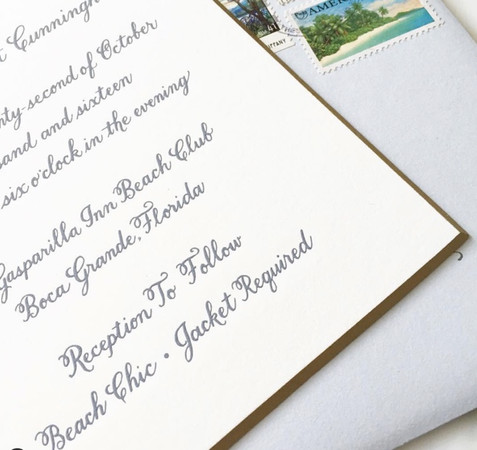 t Cunningh
nty-second of October
sand and sixteen
six o'clock in the evening
Gasparilla Inn Beach Club
Boca Grande, Florida
Reception To Follow
Beach Chic • Jacket Required
AMERI
41